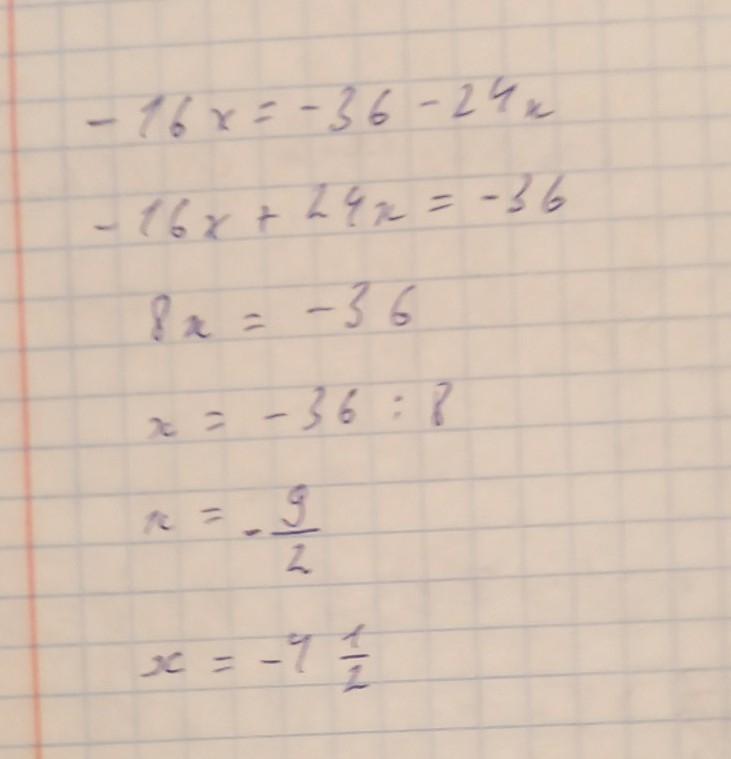 -16x = -36 - 24x
-16x + 24x = -36
8x = -36
x = -36 : 8
x = -9/2
x = -4 1/2